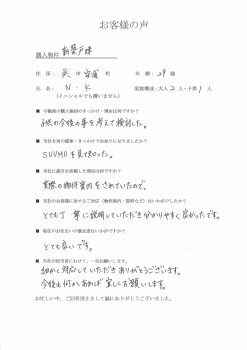 お客様の声
購入物件 新築戸建
住所： 呉 市 安浦 町 年齢：29 歳
氏名： N・K 家族構成：大人 2 人・子供 1 人
（イニシャルでも構いません）
■ 不動産の購入検討のきっかけ・理由は何ですか？
子供の今後の事を考えて検討した。
■ 当社を何の媒体・きっかけでお知りになりましたか？
SUUMOを見て知った。
■ 当社に媒介を依頼した理由は何ですか？
実際の物件案内をされていたので。
■ 当社のお客様に対するご対応（物件案内・説明など）はいかがでしたか？
とても丁寧に説明していただき分かりやすく良かったです。
■ 現在のお住まいの満足度はいかがですか？
とても良いです。
■ 当社の担当者にむけて、一言お願いします。
細かく対応していただきありがとうございます。
今後も何かあれば宜しくお願いします。
お忙しい中、ご回答頂きまして誠にありがとうございました。